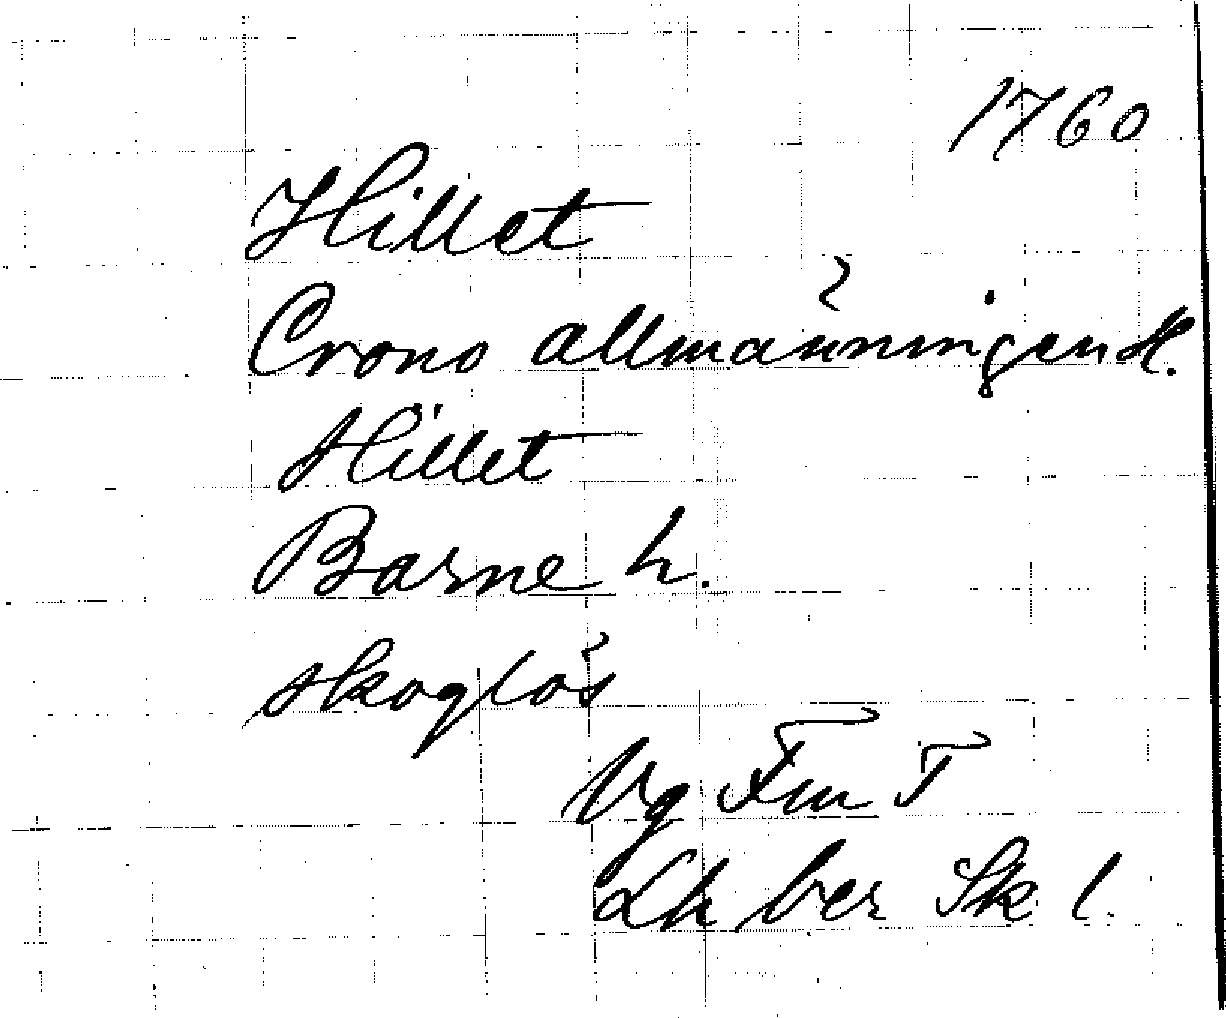 1760
Hillet
Crono allmänningen H.
Hillet
Barne h.
skoglös
Vg Fm T
Lh ber Sk l.